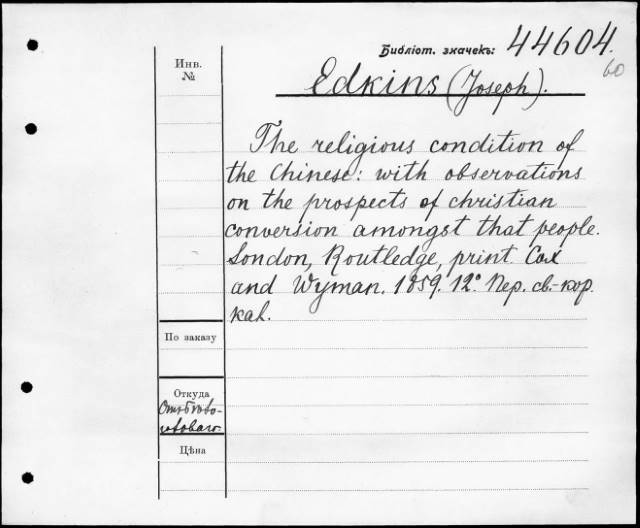 Библіот. значекъ: 44604.
60
Инв.
№
Edkins (Joseph).
The religious condition of
the Chinese: with observations
on the prospects of christian
conversion amongst that people.
London, Routledge, print. Cox
and Wyman. 1859. 12° Пер. св.-кор.
кал.
По заказу
Откуда
Цѣна